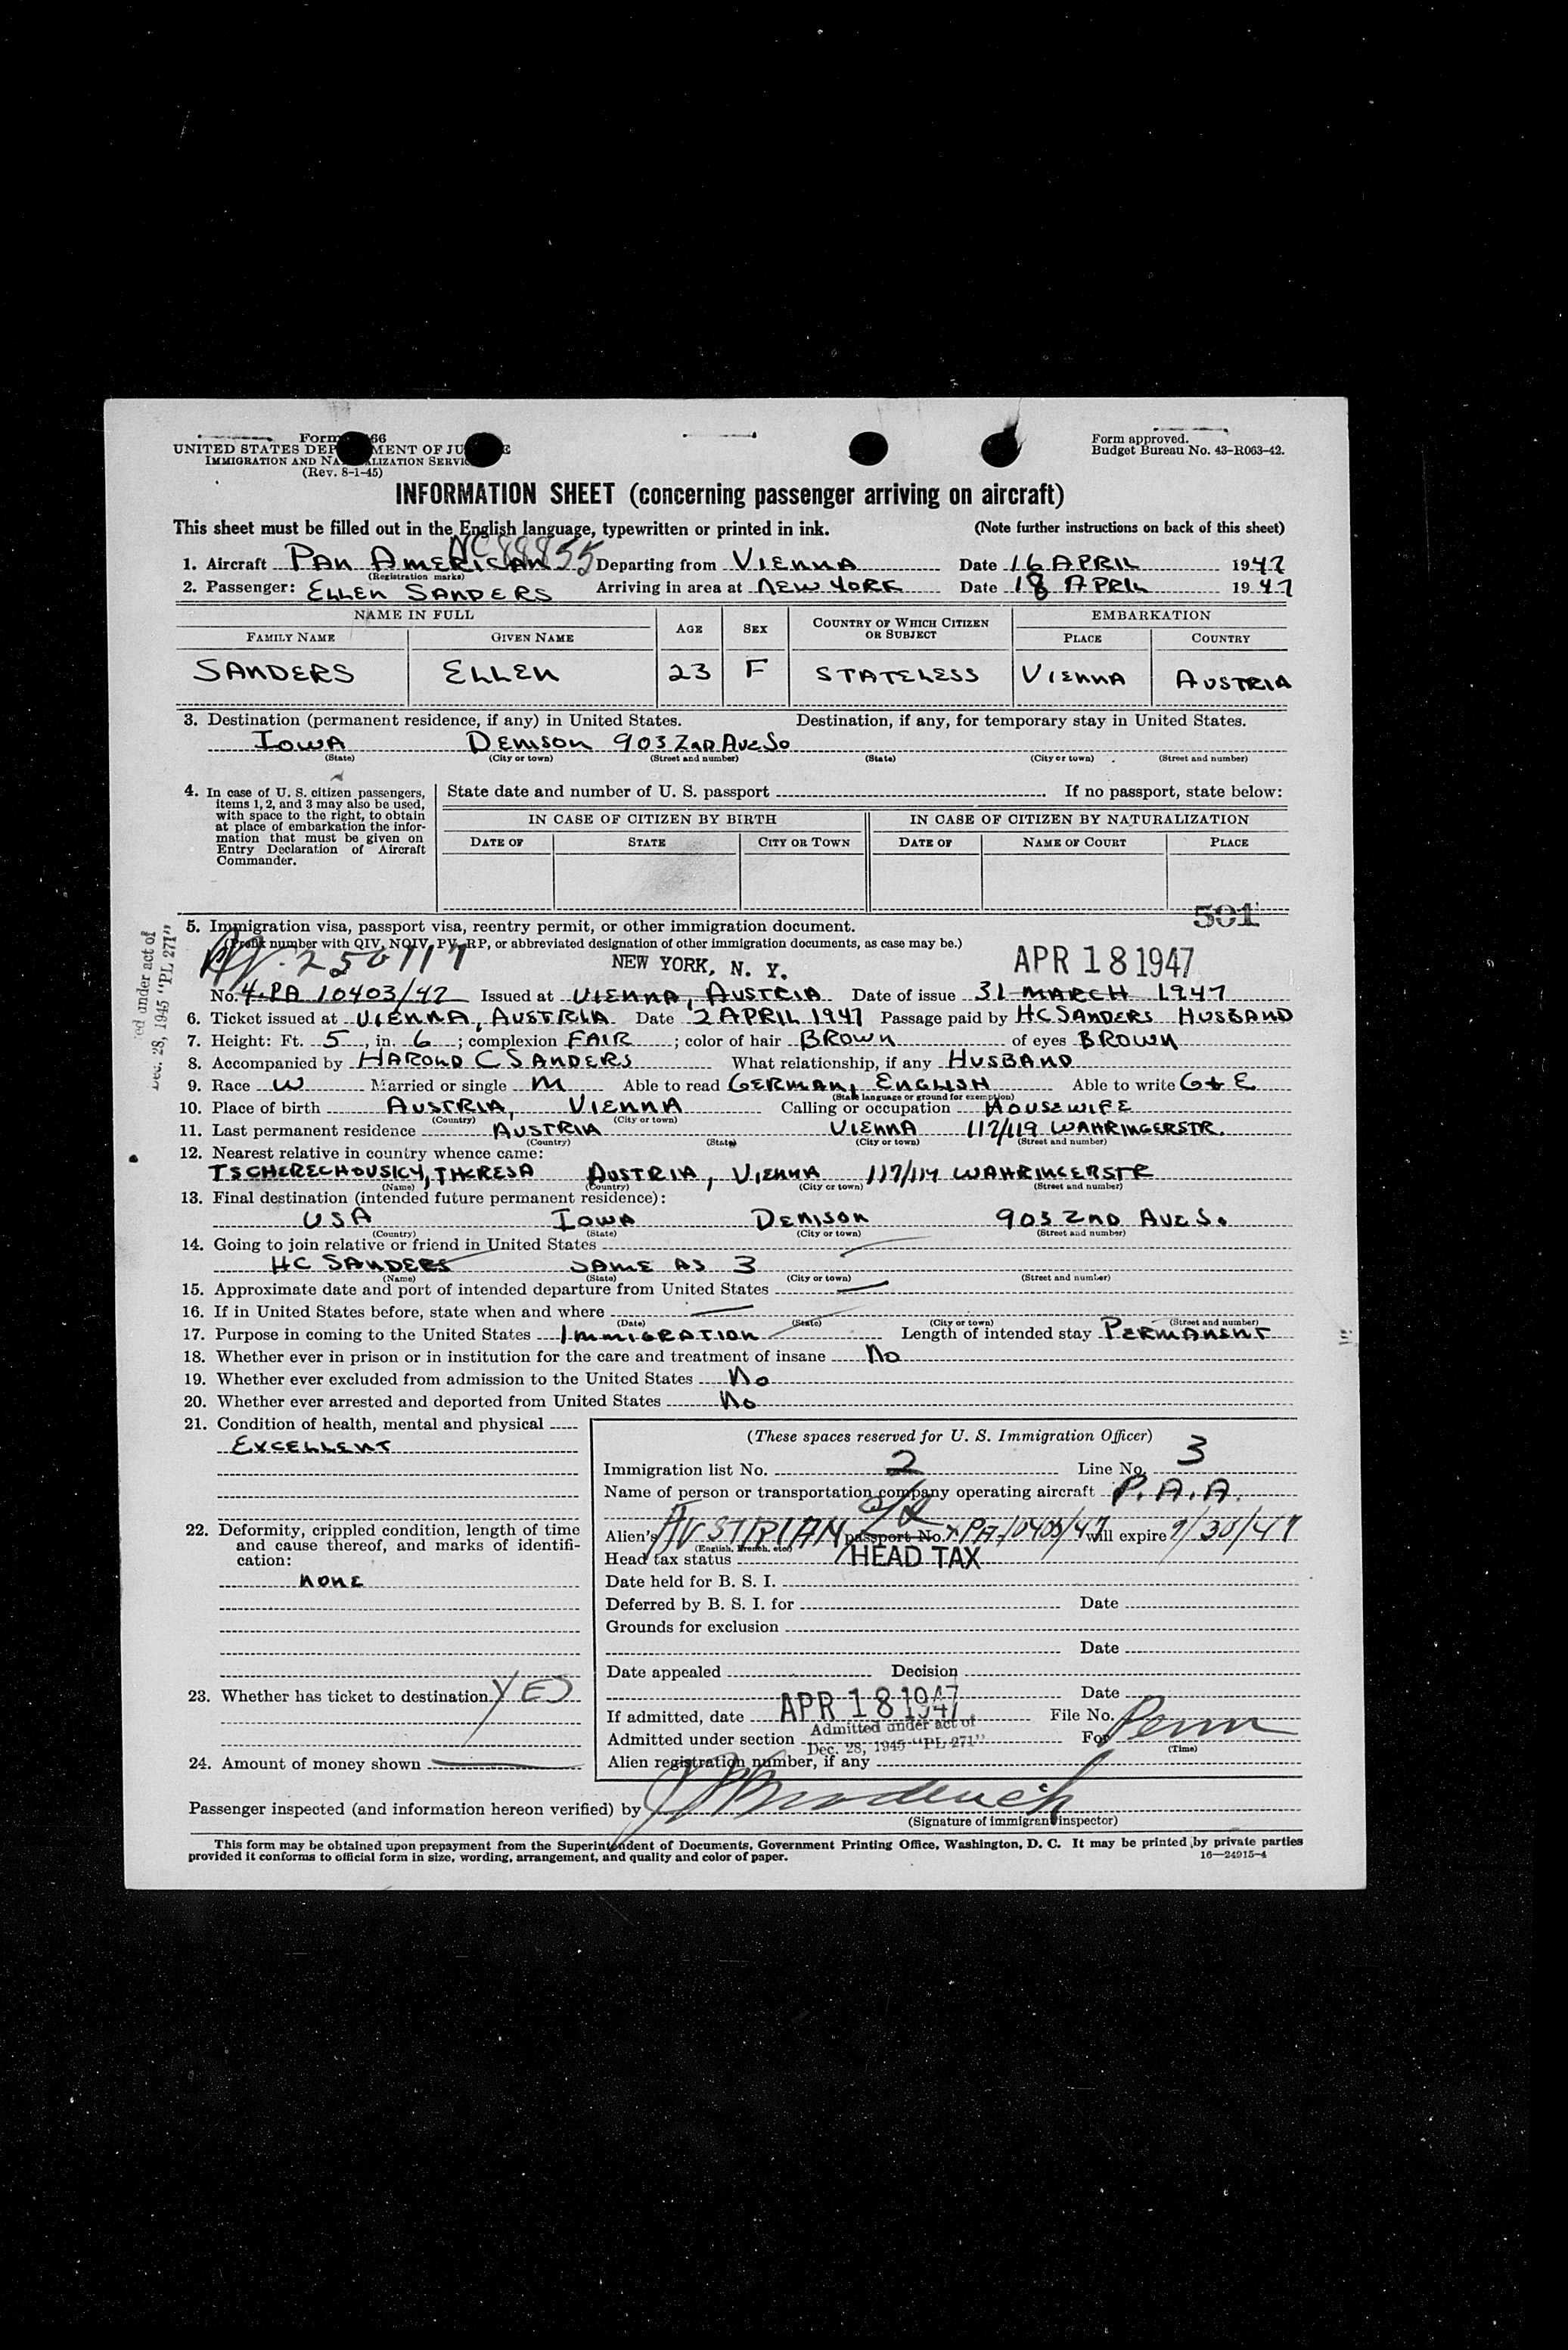 Form 66
UNITED STATES DEP MENT OF JU E
IMMIGRATION AND NA LIZATION SERVIC
(Rev. 8-1-45)
Form approved.
Budget Bureau No. 43-R063-42.
INFORMATION SHEET (concerning passenger arriving on aircraft)
This sheet must be filled out in the English language, typewritten or printed in ink. (Note further instructions on back of this sheet)
NC 88855
1. Aircraft PAN AMERICAN Departing from VIENNA Date 16 APRIL 1947
(Registration marks)
2. Passenger: ELLEN SANDERS Arriving in area at NEW YORK Date 18 APRIL 1947
NAME IN FULL AGE SEX COUNTRY OF WHICH CITIZEN OR SUBJECT EMBARKATION
FAMILY NAME GIVEN NAME PLACE COUNTRY
SANDERS ELLEN 23 F STATELESS VIENNA AUSTRIA
3. Destination (permanent residence, if any) in United States. Destination, if any, for temporary stay in United States.
IOWA DENISON 903 2ND AVE SO
(State) (City or town) (Street and number) (State) (City or town) (Street and number)
4. In case of U. S. citizen passengers, items 1, 2, and 3 may also be used, with space to the right, to obtain at place of embarkation the information that must be given on Entry Declaration of Aircraft Commander.
State date and number of U. S. passport If no passport, state below:
IN CASE OF CITIZEN BY BIRTH IN CASE OF CITIZEN BY NATURALIZATION
DATE OF STATE CITY OR TOWN DATE OF NAME OF COURT PLACE
501
5. Immigration visa, passport visa, reentry permit, or other immigration document.
(Print number with QIV, NQIV, PV, RP, or abbreviated designation of other immigration documents, as case may be.)
250717 NEW YORK, N. Y. APR 18 1947
No. 4.PA 10403/47 Issued at VIENNA, AUSTRIA Date of issue 31 MARCH 1947
6. Ticket issued at VIENNA, AUSTRIA Date 2 APRIL 1947 Passage paid by HC SANDERS HUSBAND
7. Height: Ft. 5, in. 6; complexion FAIR; color of hair BROWN of eyes BROWN
8. Accompanied by HAROLD C SANDERS What relationship, if any HUSBAND
9. Race W Married or single M Able to read GERMAN, ENGLISH Able to write G & E
(State language or ground for exemption)
10. Place of birth AUSTRIA, VIENNA Calling or occupation HOUSEWIFE
(Country) (City or town)
11. Last permanent residence AUSTRIA VIENNA 117/119 WAHRINGERSTR.
(Country) (State) (City or town) (Street and number)
12. Nearest relative in country whence came:
TSCHERECHOUSKY, THERESA AUSTRIA, VIENNA 117/119 WAHRINGERSTR
(Name) (Country) (City or town) (Street and number)
13. Final destination (intended future permanent residence):
USA IOWA DENISON 903 2ND AVE S.
(Country) (State) (City or town) (Street and number)
14. Going to join relative or friend in United States
HC SANDERS SAME AS 3
(Name) (State) (City or town) (Street and number)
15. Approximate date and port of intended departure from United States —
16. If in United States before, state when and where —
(Date) (State) (City or town) (Street and number)
17. Purpose in coming to the United States IMMIGRATION Length of intended stay PERMANENT
18. Whether ever in prison or in institution for the care and treatment of insane NO
19. Whether ever excluded from admission to the United States NO
20. Whether ever arrested and deported from United States NO
21. Condition of health, mental and physical
EXCELLENT
22. Deformity, crippled condition, length of time and cause thereof, and marks of identification:
NONE
23. Whether has ticket to destination YES
24. Amount of money shown —
(These spaces reserved for U. S. Immigration Officer)
Immigration list No. 2 Line No. 3
Name of person or transportation company operating aircraft P.A.A.
Alien's AUSTRIAN passport No. PA 10403/47 will expire 9/30/47
(English, French, etc.)
Head tax status HEAD TAX
Date held for B. S. I.
Deferred by B. S. I. for Date
Grounds for exclusion
Date
Date appealed Decision
Date
If admitted, date APR 18 1947 File No.
Admitted under section Admitted under act of Dec. 28, 1945 "PL 271" For Perm
(Time)
Alien registration number, if any
Passenger inspected (and information hereon verified) by
(Signature of immigrant inspector)
This form may be obtained upon prepayment from the Superintendent of Documents, Government Printing Office, Washington, D. C. It may be printed by private parties
provided it conforms to official form in size, wording, arrangement, and quality and color of paper. 16—24915-4
ed under act of
Dec. 28, 1945 "PL 271"